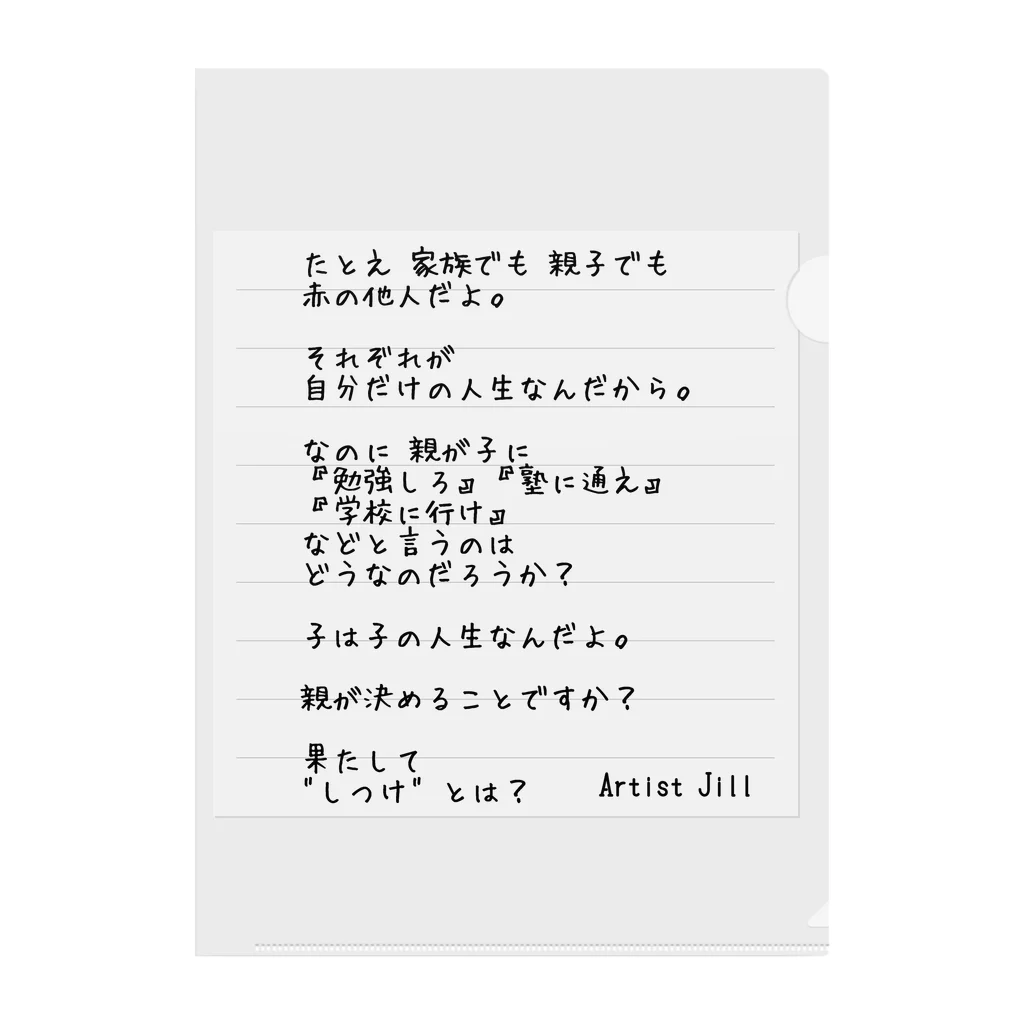 たとえ 家族でも 親子でも
赤の他人だよ。
それぞれが
自分だけの人生なんだから。
なのに 親が子に
『勉強しろ』『塾に通え』
『学校に行け』
などと言うのは
どうなのだろうか？
子は子の人生なんだよ。
親が決めることですか？
果たして
"しつけ" とは？
Artist Jill